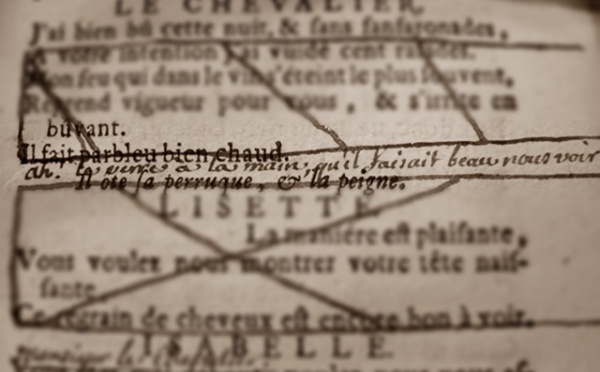 LE CHEVALIER.
J'ai bien bû cette nuit, & sans fanfaronades,
A votre intention j'ai vuidé cent rasades.
Mon feu qui dans le vin s'éteint le plus souvent,
Reprend vigueur pour vous, & s'irrite en
bûvant.
Il fait parbleu bien chaud.
ah. le verre a la main, quil faisait beau nous voir
Il ôte sa perruque, & la peigne.
LISETTE.
La maniére est plaisante,
Vous voulez nous montrer votre tête nais-
sante
Ce regrain de cheveux est encore bon à voir.
ISABELLE.
monsieur le Chevalier